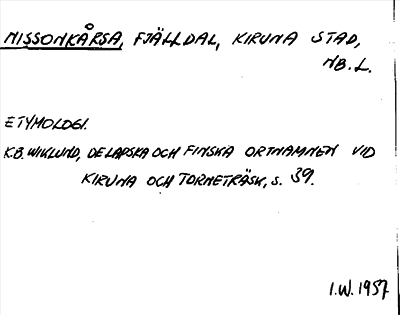 NISSONKÅRSA, FJÄLLDAL, KIRUNA STAD,
NB.L.
ETYMOLOGI.
K.B. WIKLUND, DE LAPSKA OCH FINSKA ORTNAMNEN VID
KIRUNA OCH TORNETRÄSK, S. 39.
I.W. 1957